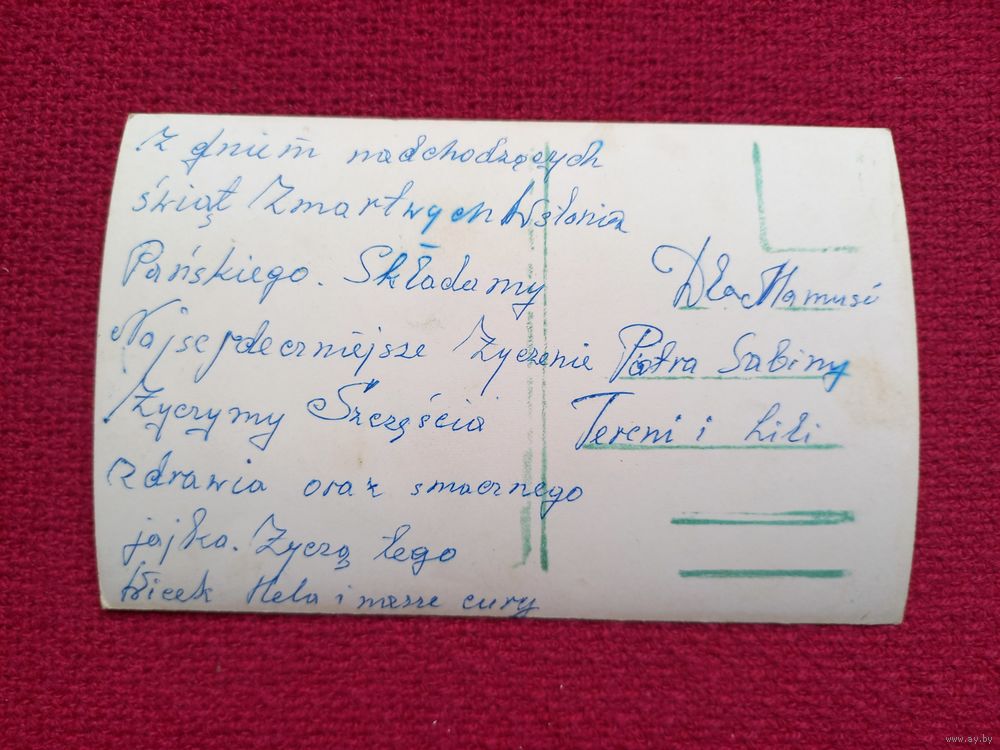 Z dniem nadchodzących
świąt Zmartwychwstonia
Pańskiego. Składamy
Najserdeczniejsze Życzenie
Życzymy Szczęścia
zdrawia oraz smacznego
jajka. Życzą tego
Wicek Hela i nasze cury
Dla Mamusi
Piotra Sabiny
Tereni i Lili
www.ay.by